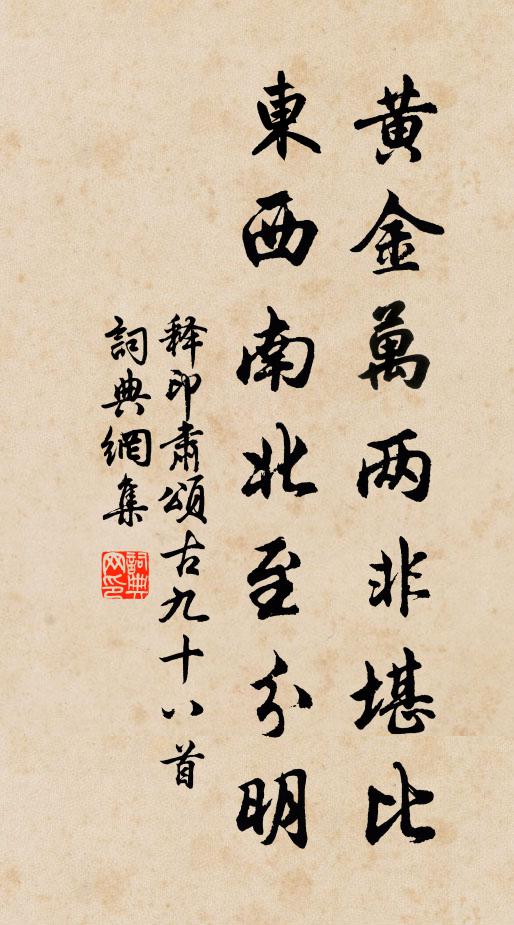 黄金萬两非堪比
東西南北至分明
释印肃頌古九十八首
詞典網集
詞典网印